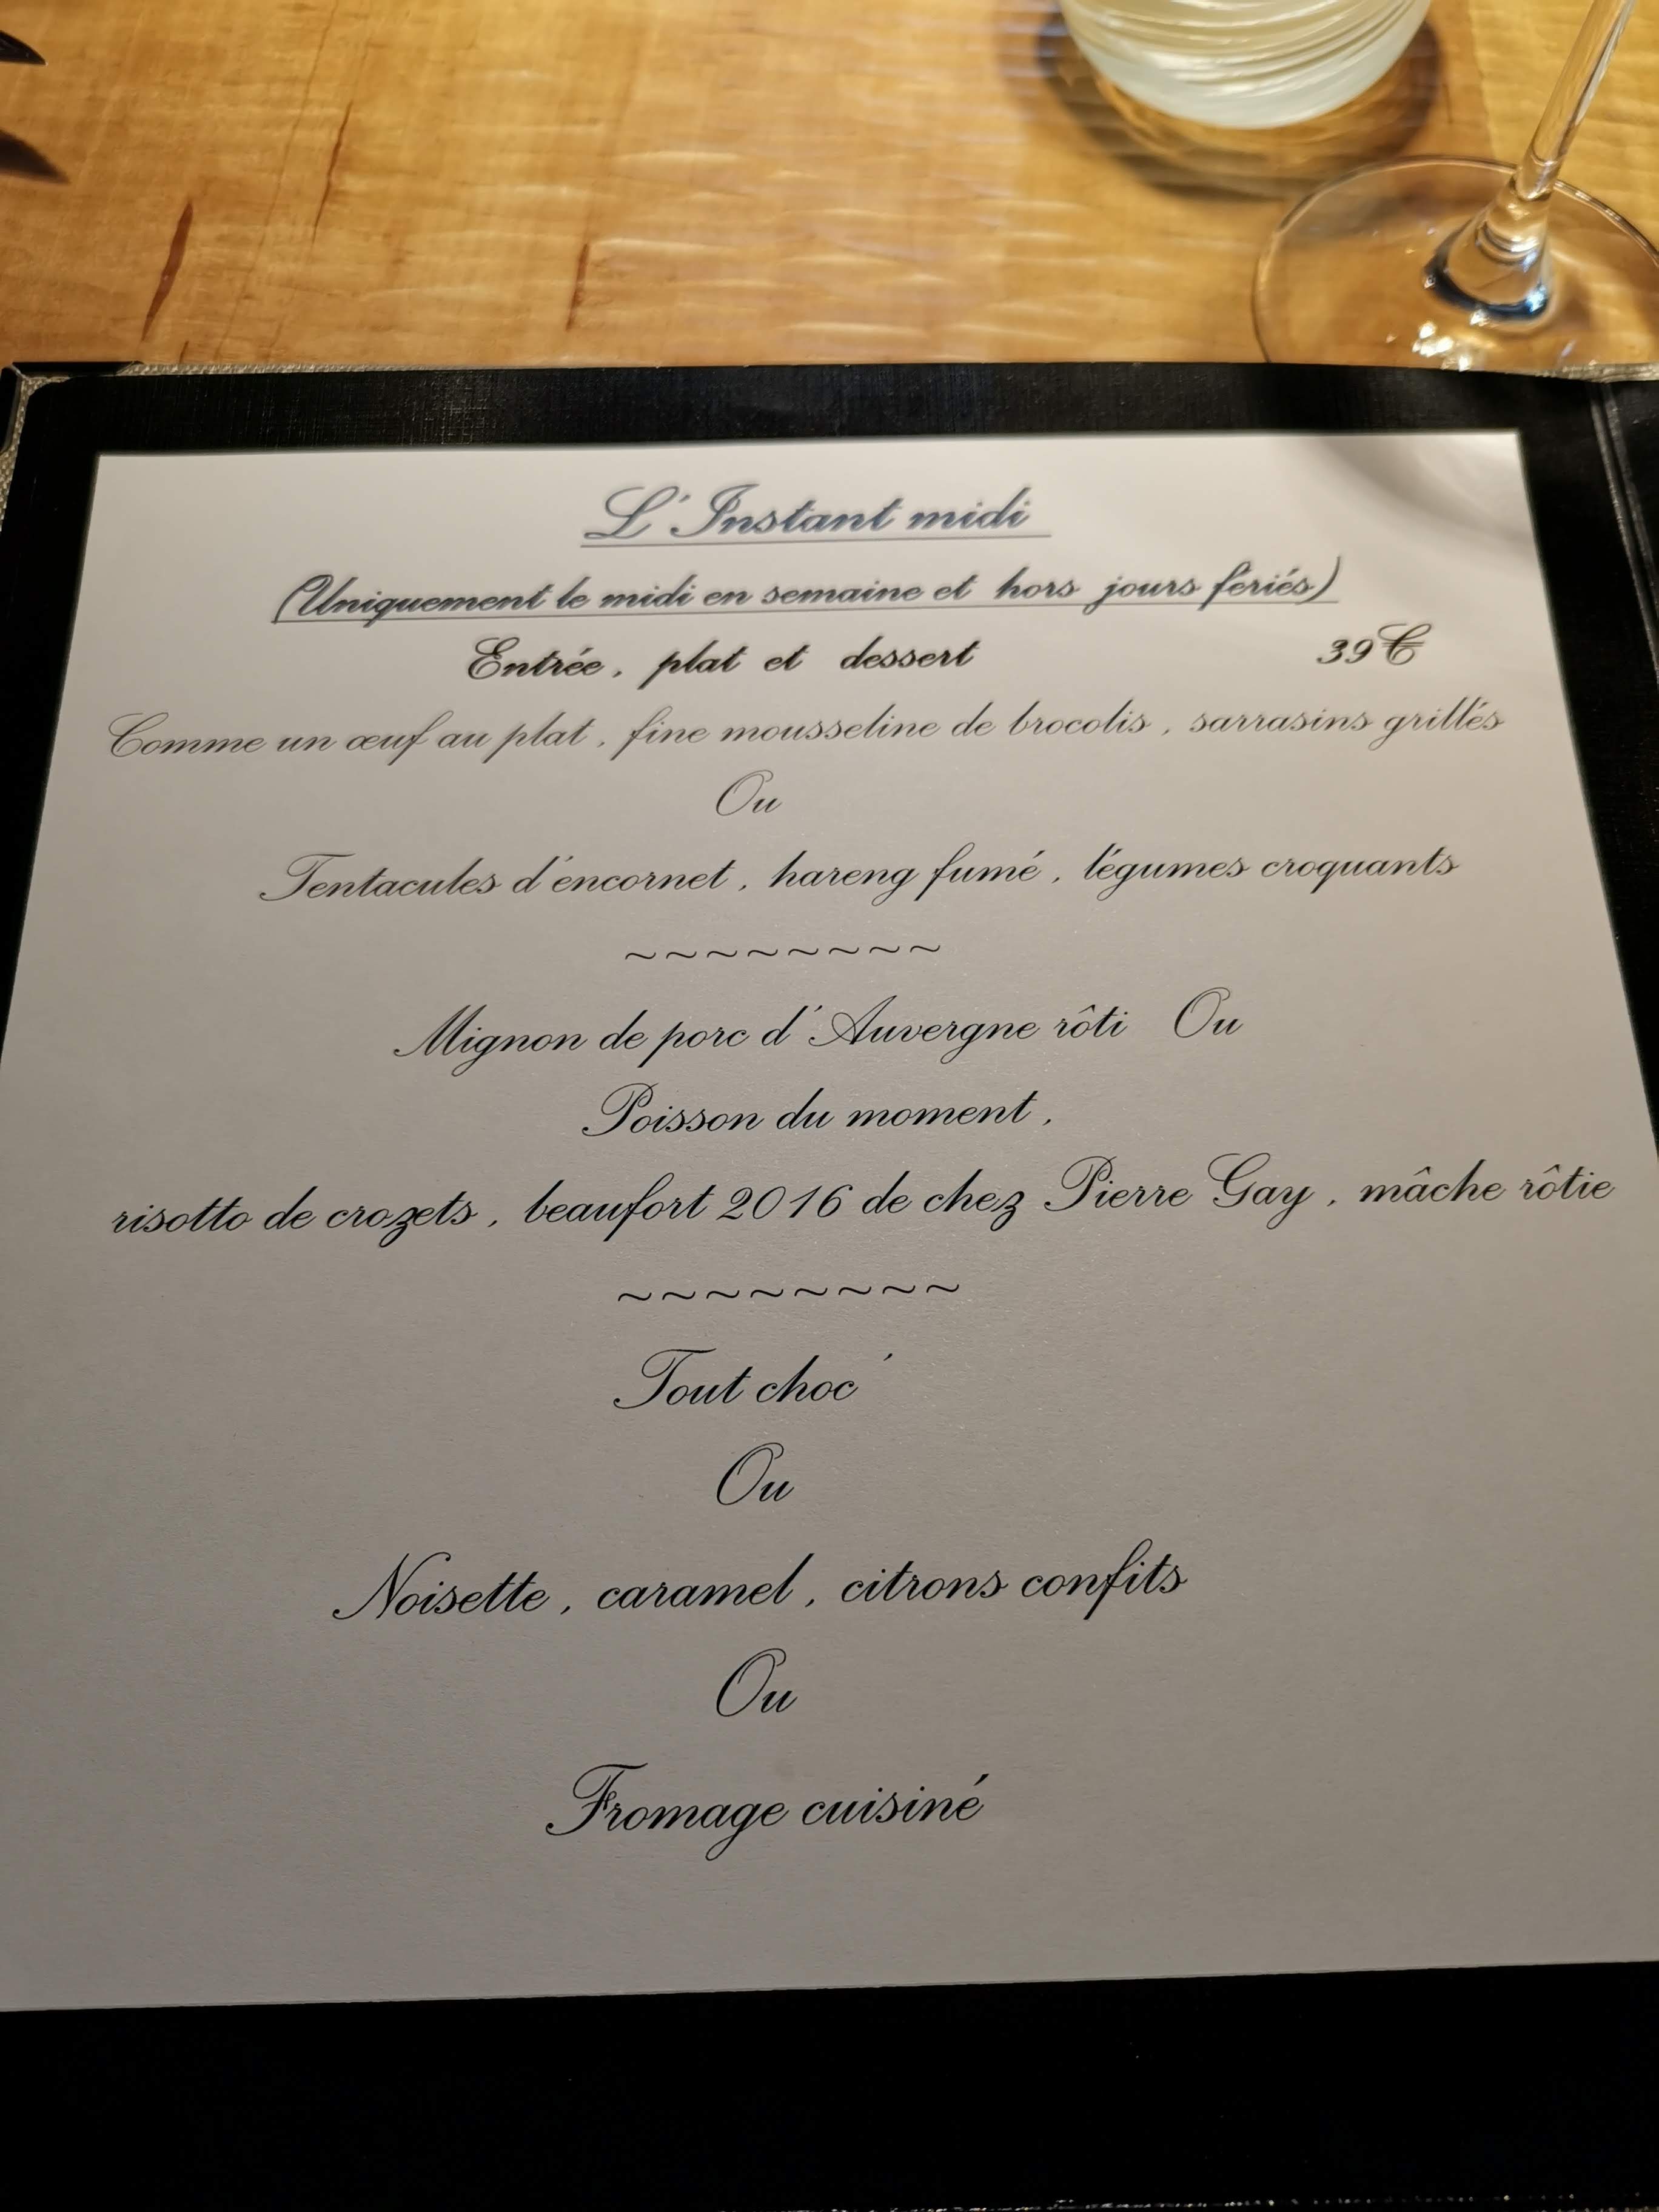 L'Instant midi
(Uniquement le midi en semaine et hors jours feriés)
Entrée, plat et dessert 39€
Comme un œuf au plat, fine mousseline de brocolis, sarrasins grillés
Ou
Tentacules d'encornet, hareng fumé, légumes croquants
~~~~~~~~
Mignon de porc d'Auvergne rôti Ou
Poisson du moment,
risotto de crozets, beaufort 2016 de chez Pierre Gay, mâche rôtie
~~~~~~~~
Tout choc'
Ou
Noisette, caramel, citrons confits
Ou
Fromage cuisiné